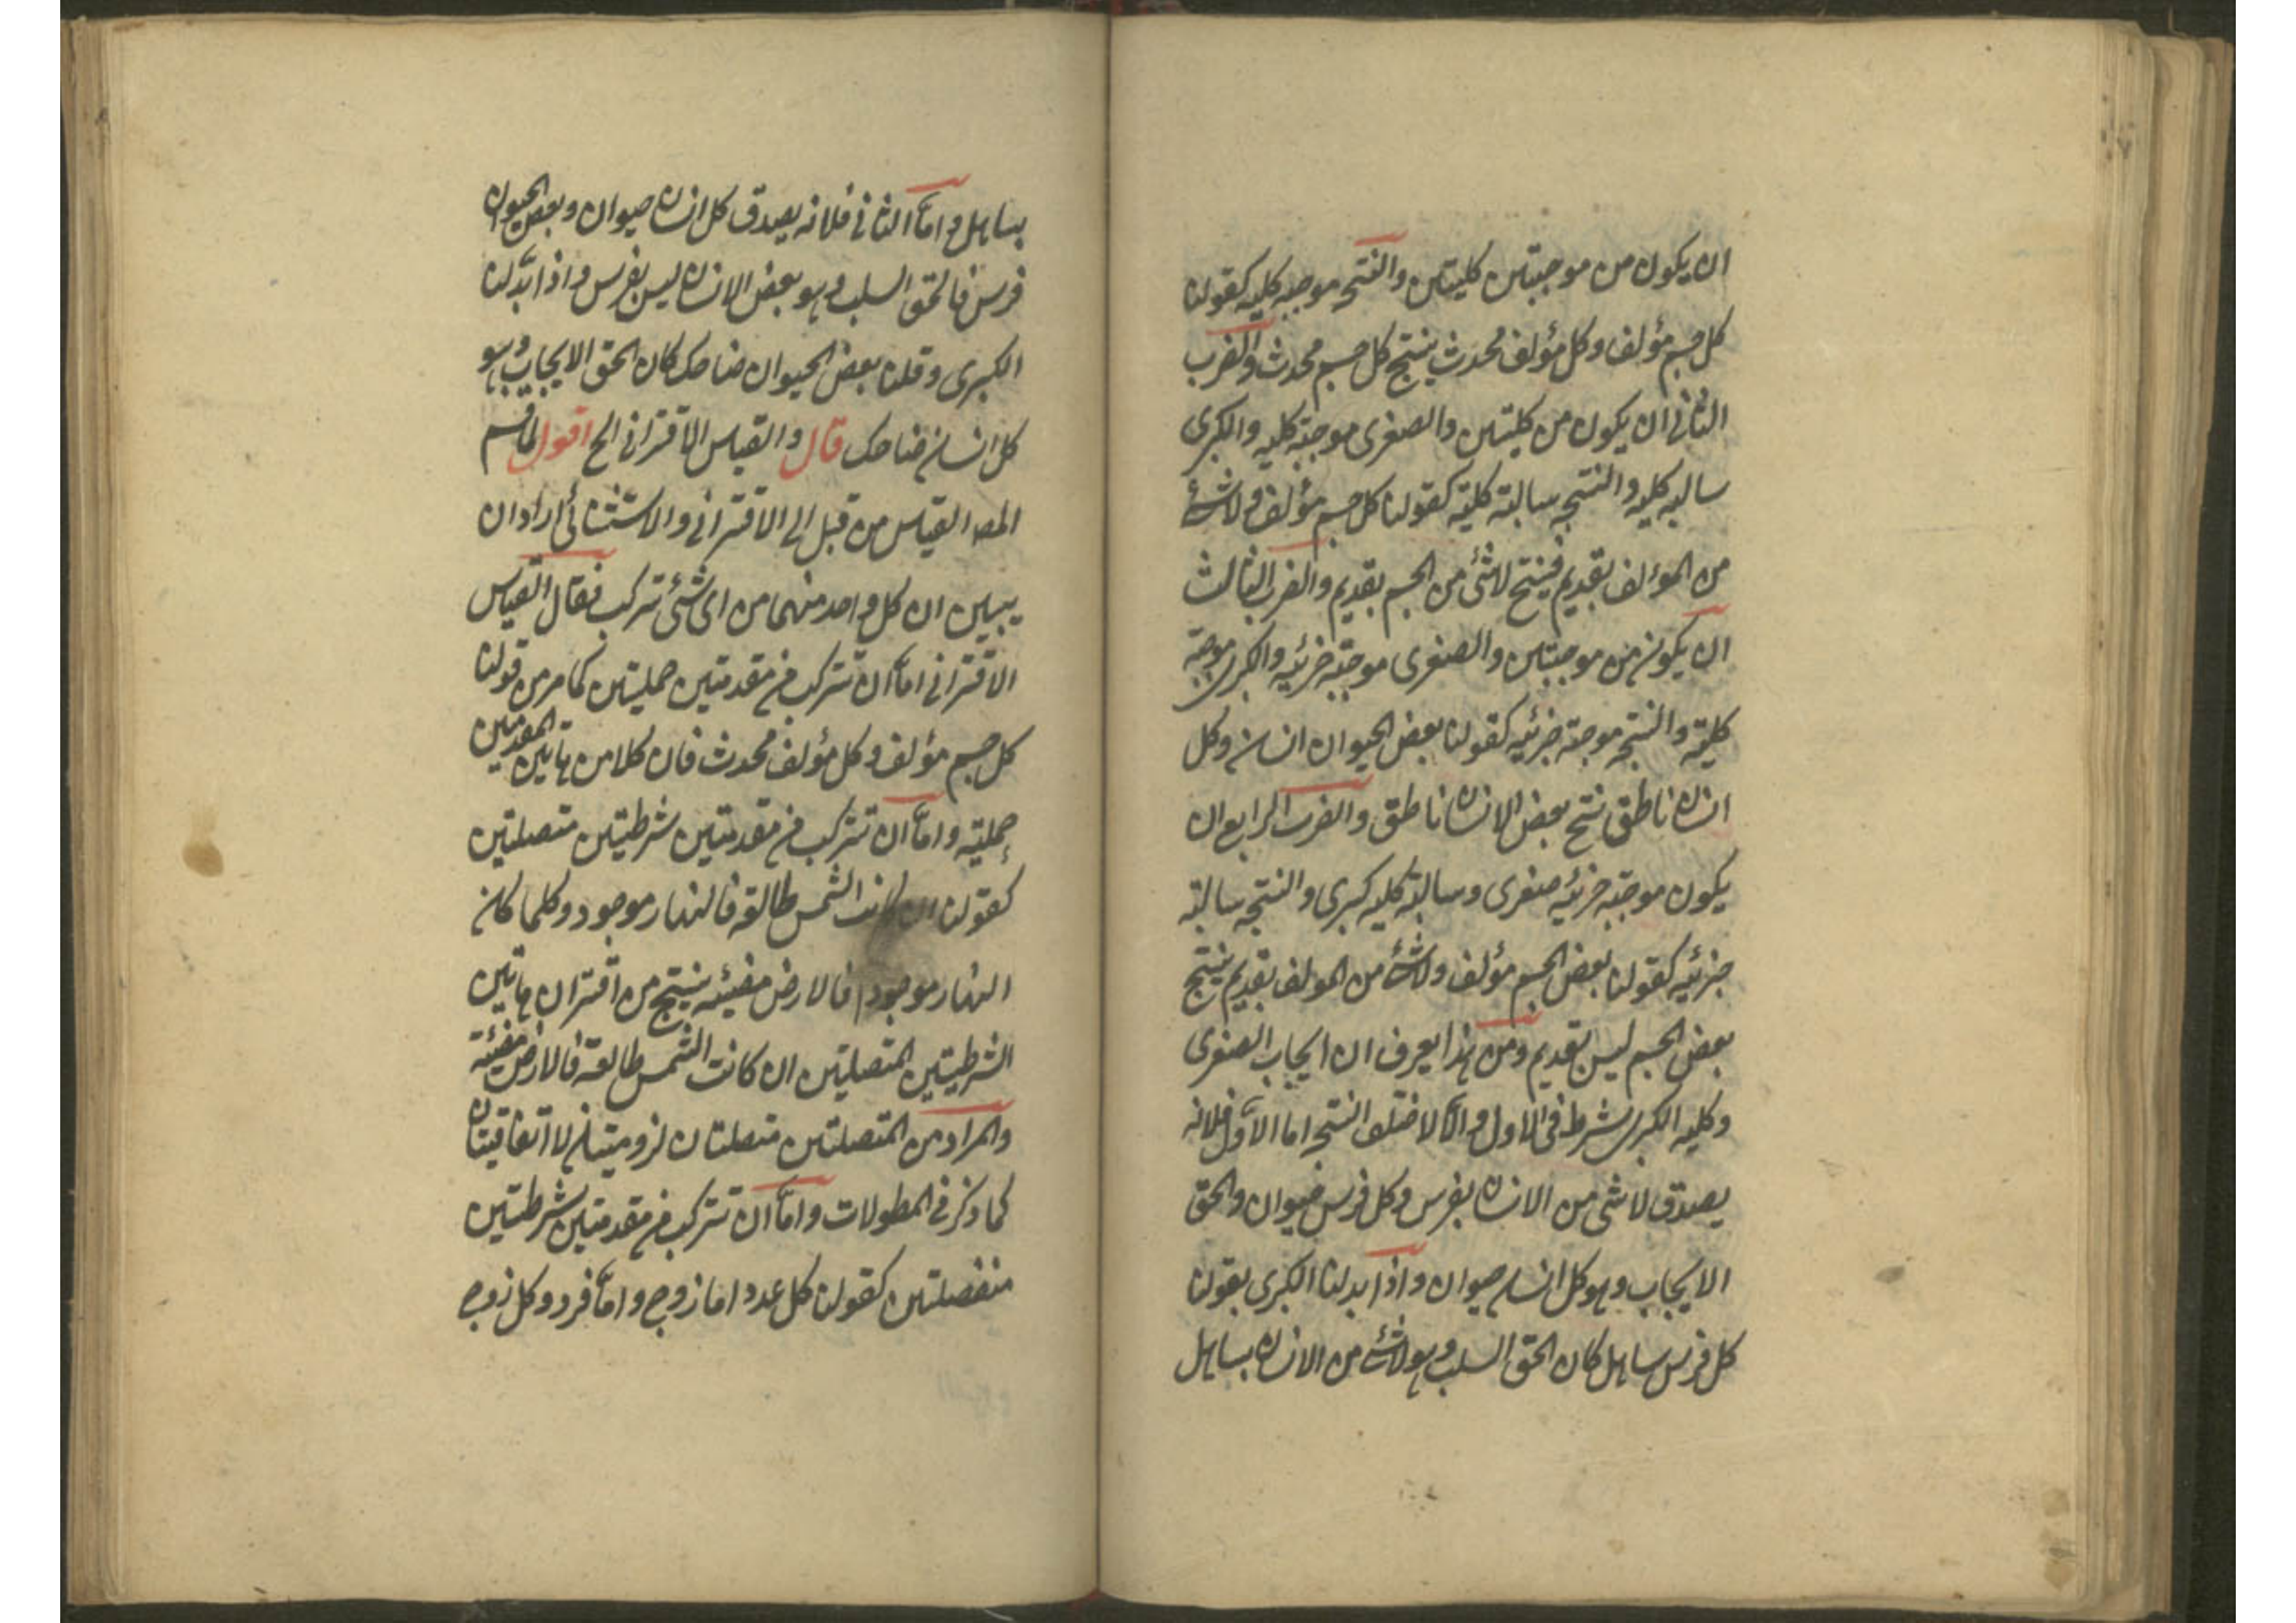 ان يكون من موجبتين كليتين والنتيجه موجبه كليه كقولنا
كل جسم مؤلف وكل مؤلف محدث ينتج كل جسم محدث والضرب
الثانى ان يكون من كليتين والصغرى موجبة كليه والكبرى
سالبه كليه والنتيجه سالبة كلية كقولنا كل جسم مؤلف ولاشئ
من المؤلف بقديم فينتج لاشئ من الجسم بقديم والضرب الثالث
ان يكون من موجبتين والصغرى موجبة جزئيه والكبرى موجبة
كلية والنتيجه موجبة جزئيه كقولنا بعض الحيوان انسان وكل
انسان ناطق ينتج بعض الانسان ناطق والضرب الرابع ان
يكون موجبة جزئيه صغرى وسالبة كليه كبرى والنتيجه سالبة
جزئيه كقولنا بعض الجسم مؤلف ولاشئ من المولف بقديم ينتج
بعض الجسم ليس بقديم ومن هذا يعرف ان ايجاب الصغرى
وكليه الكبرى شرط فى الاول والا لاختلف النتيجه اما الاول فلانه
يصدق لاشى من الانسان بفرس وكل فرس حيوان والحق
الايجاب وهو كل انسان حيوان واذا بدلنا الكبرى بقولنا
كل فرس ساهل كان الحق السلب وهو لاشئ من الانسان بساهل
بساهل واما الثانى فلانه يصدق كل انسان حيوان وبعض الحيوان
فرس فالحق السلب وهو بعض الانسان ليس بفرس واذا بدلنا
الكبرى وقلنا بعض الحيوان ضاحك كان الحق الايجاب وهو
كل انسان ضاحك قال والقياس الاقترانى الخ اقول لما قسم
المصه القياس من قبل الى الاقترانى والاستثنائى اراد ان
يبين ان كل واحد منهما من اى شئ تتركب فقال القياس
الاقترانى اما ان تتركب من مقدمتين حمليتين كما مر من قولنا
كل جسم مؤلف وكل مؤلف محدث فان كلا من هاتين المقدمتين
حملية واما ان تتركب من مقدمتين شرطيتين متصلتين
كقولنا ان كانت الشمس طالعة فالنهار موجود وكلما كان
النهار موجودا فالارض مضيئه ينتج من اقتران هاتين
الشرطيتين المتصلتين ان كانت الشمس طالعة فالارض مضيئة
والمراد من المتصلتين متصلتان لزوميتان لا اتفاقيتان
كما ذكر فى المطولات واما ان تتركب من مقدمتين شرطتين
منفصلتين كقولنا كل عدد اما زوج واما فرد وكل زوج